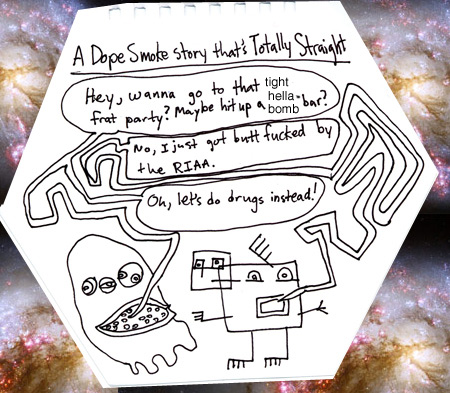 A Dope Smoke story that's Totally Straight
Hey, wanna go to that tight
hella
frat party? Maybe hit up a bomb bar?
No, I just got butt fucked by
the RIAA.
Oh, let's do drugs instead!